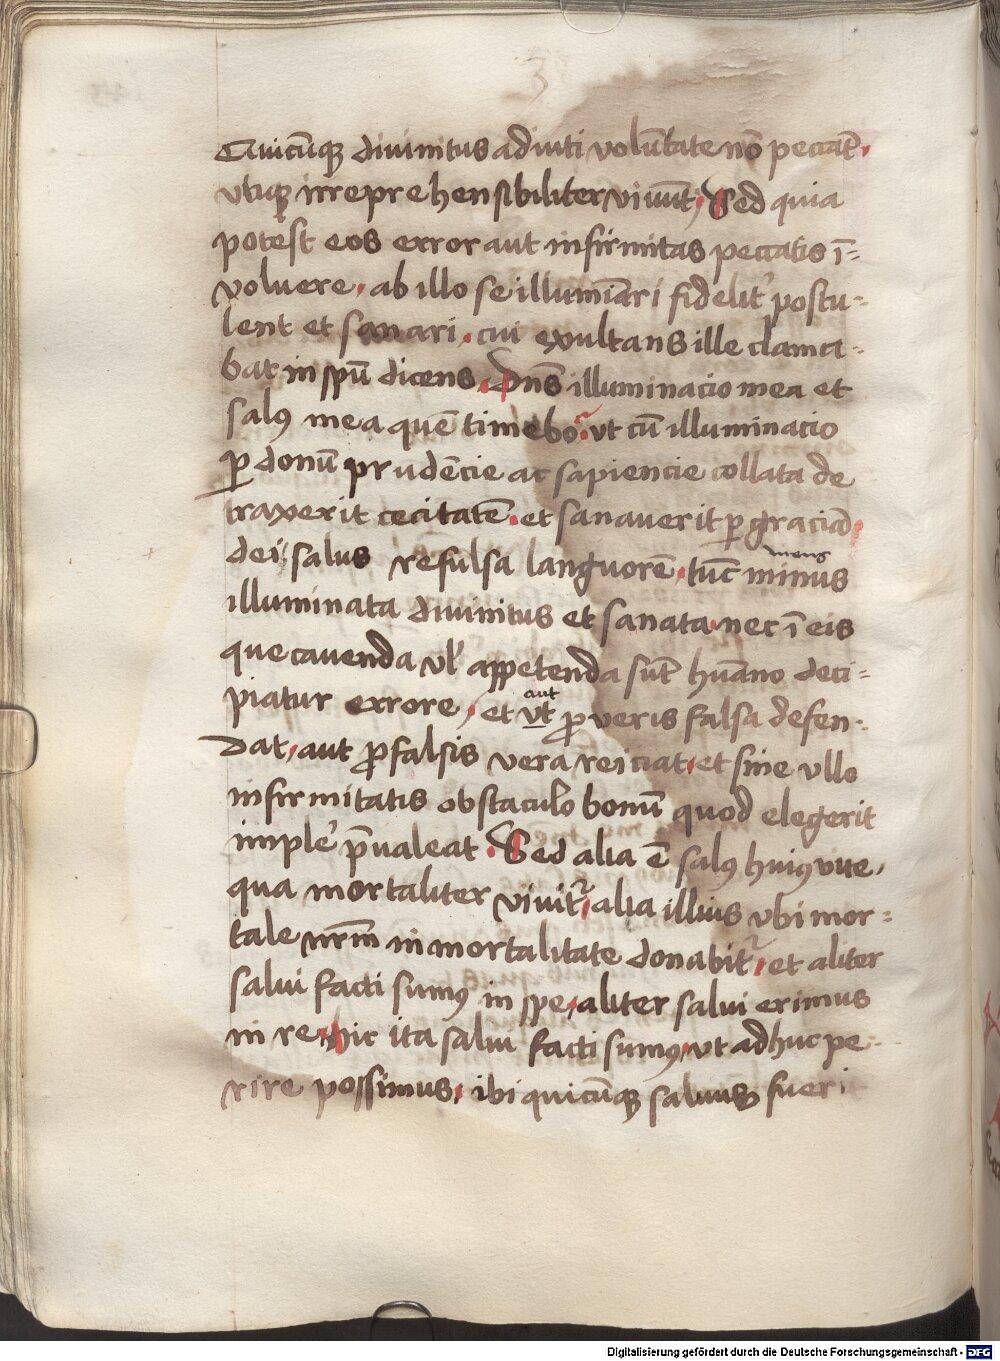 Quicūqꝫ diuinitus adiuti volūtate nō peccāt.
vtiqꝫ irreprehensibiliter viuūt, Sed quia
potest eos error aut infirmitas peccatis ī=
voluere, ab illo se illumīari fidelit' postu=
lent et sanari. cui exultans ille clama=
bat in spū dicens. Dns̄ illuminacio mea et
salꝰ mea quē timebo. vt cū illuminacio
ꝑ donū prudēcie ac sapiencie collata de
traxerit cecitatē. et sanauerit ꝑ graciā
dei salus refulsa languorē. tūc minus
mens
illuminata diuinitus et sanata. nec ī eis
que cauenda vl' appetenda sūt hūano deci=
piatur errore, et vt ꝓ veris falsa defen=
aut
dat, aut ꝓ falsis vera reiciat, et sine vllo
infirmitatis obstaculo bonū quod elegerit
imple' p̄ualeat. Sed alia ē salꝰ huiꝰ vite,
qua mortaliter viuit᷑, alia illius vbi mor=
tale nr̄m inmortalitate donabit᷑, et aliter
salui facti sumꝰ in spe, aliter salui erimus
in re, hic ita salui facti sumꝰ, vt adhuc pe=
rire possimus, ibi quicūqꝫ saluus fueri
Digitalisierung gefördert durch die Deutsche Forschungsgemeinschaft - DFG